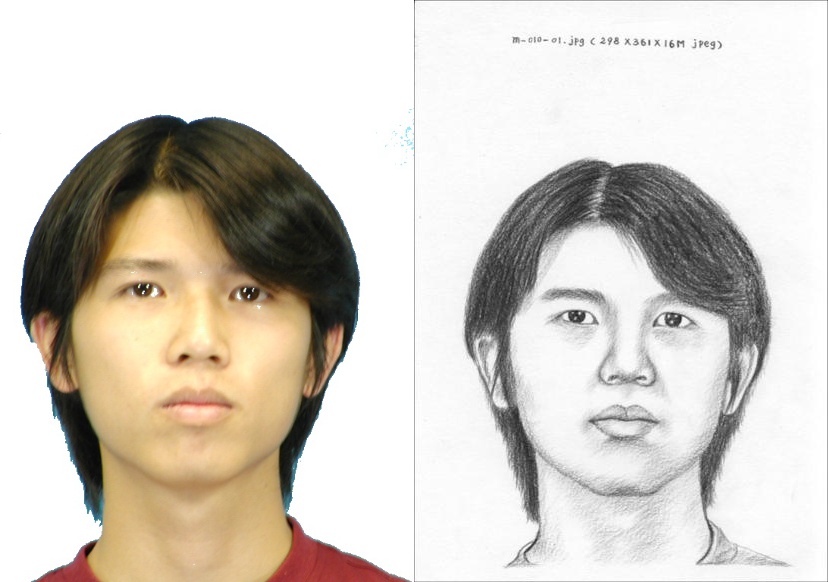 m-010-01.jpg (298X361X16M jpeg)